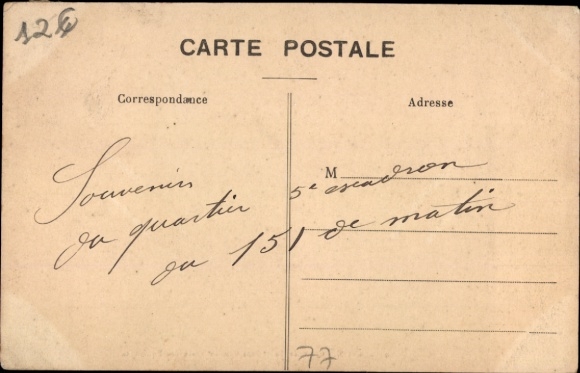 12€
CARTE POSTALE
Correspondance
Adresse
M
Souvenir 5e escadron
du quartier
du 151 de matin
77